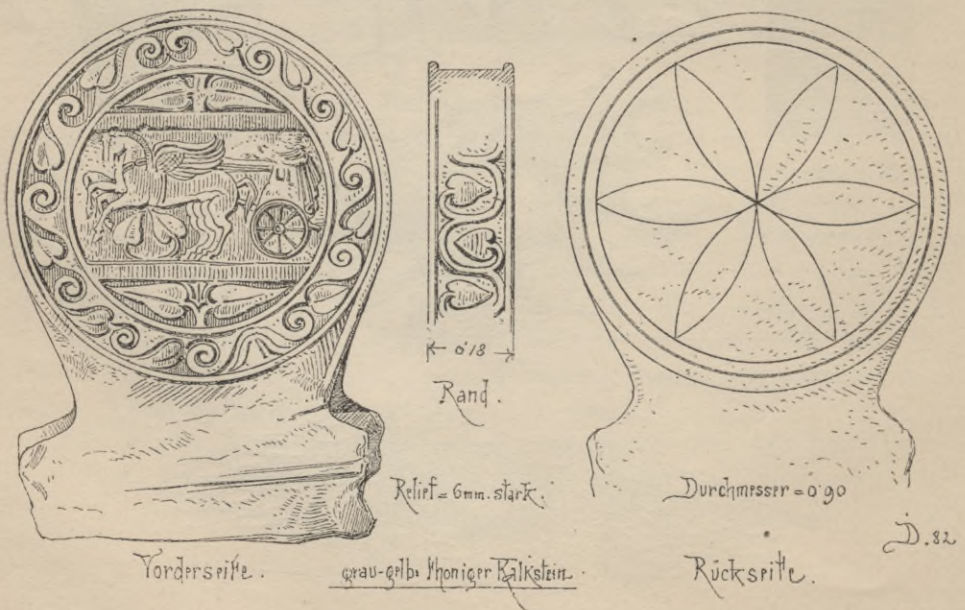 0·18
Rand.
Relief = 6mm. stark.
Durchmesser = 0·90
D. 82
Vorderseite.
grau-gelb: thoniger Kalkstein.
Rückseite.